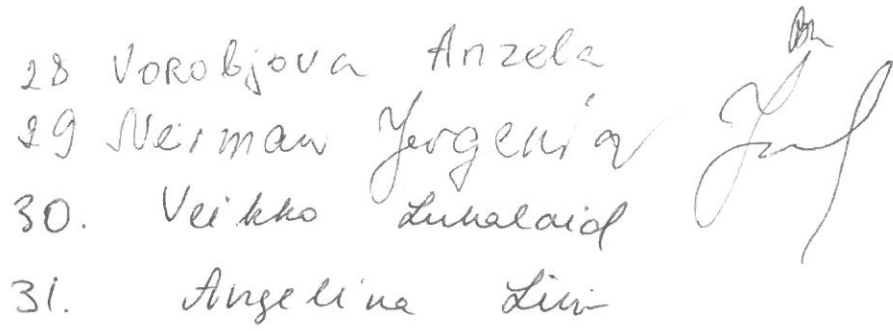 28 Vorobjova Anzela
29 Neiman Jevgenia
30. Veikko Luhalaid
31. Angelina Liiv